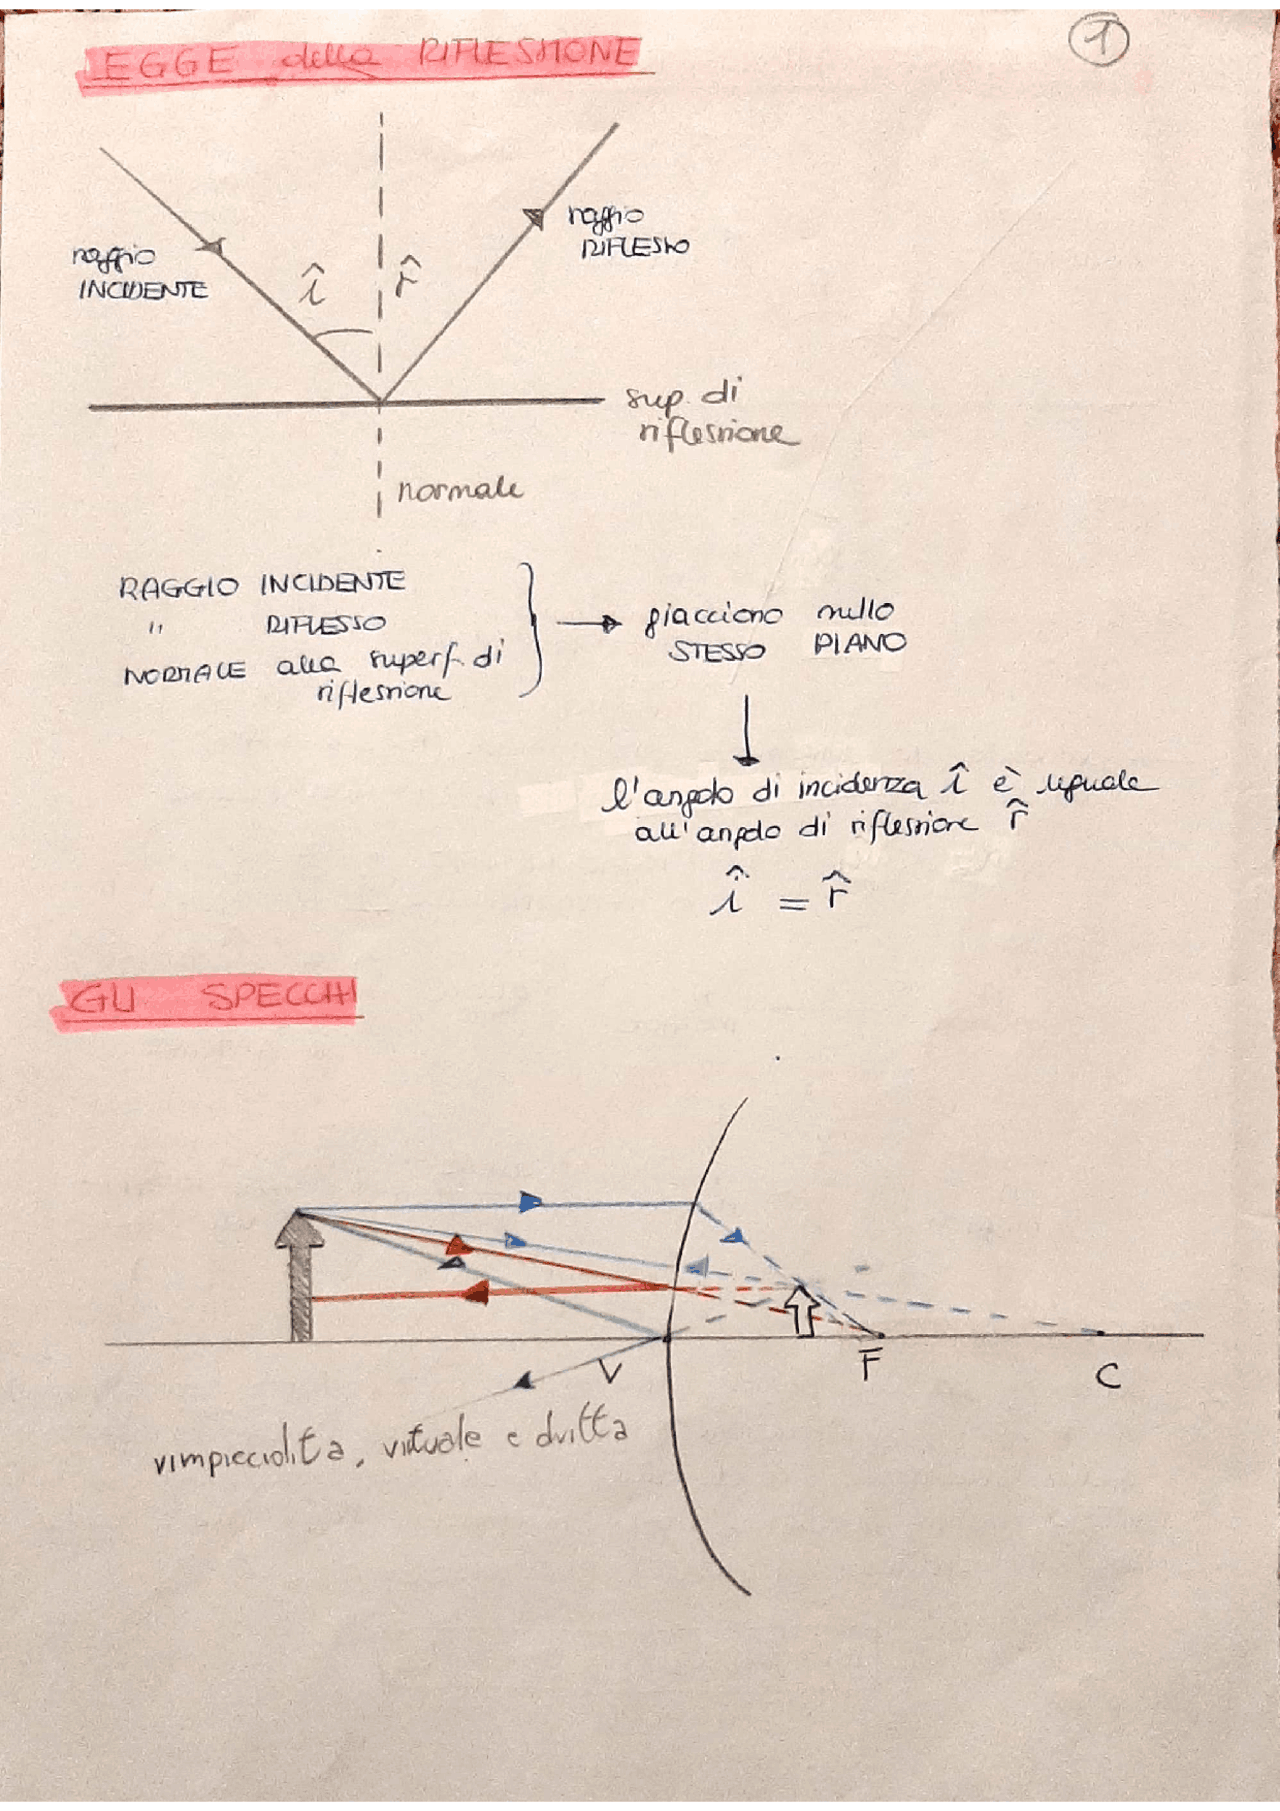 1
LEGGE della RIFLESSIONE
raggio
RIFLESSO
raggio
INCIDENTE
î
r̂
sup. di
riflessione
normale
RAGGIO INCIDENTE
" RIFLESSO
NORMALE alla superf. di
riflessione
giacciono nello
STESSO PIANO
l'angolo di incidenza î è uguale
all'angolo di riflessione r̂
î = r̂
GLI SPECCHI
V
F
C
rimpicciolita, virtuale e dritta